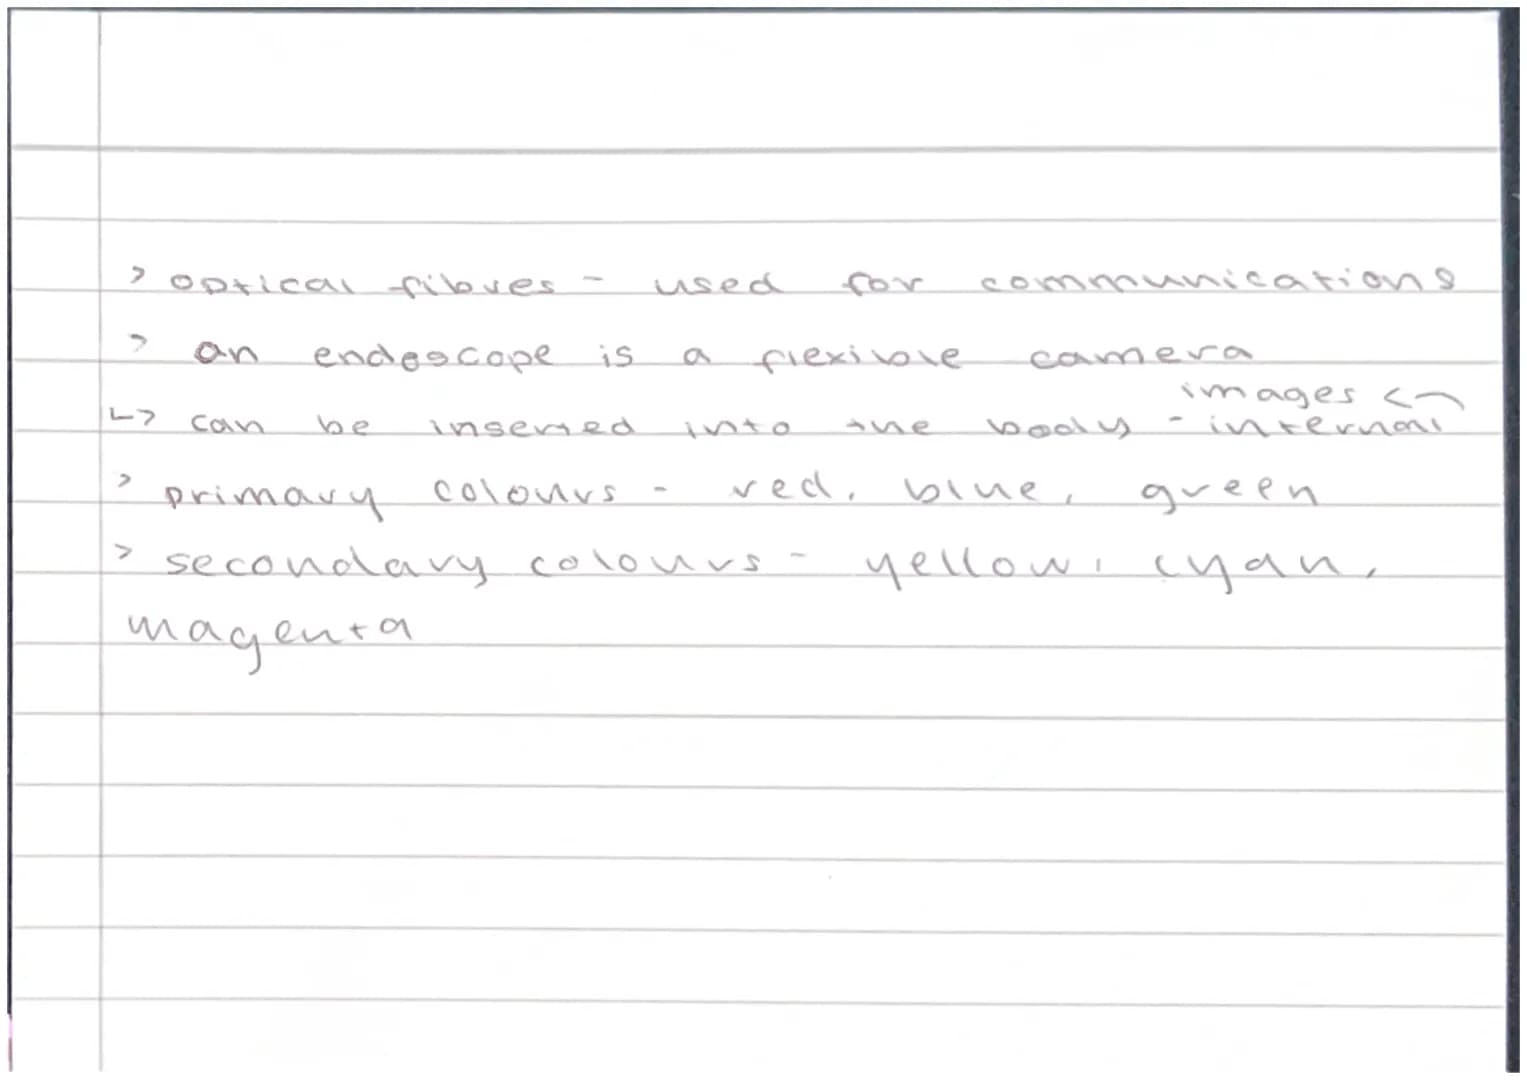 > optical fibres - used for communications
> an endoscope is a flexible camera
↳ can be inserted into the body - internal
images ↩
> primary colours - red, blue, green
> secondary colours - yellow, cyan,
magenta